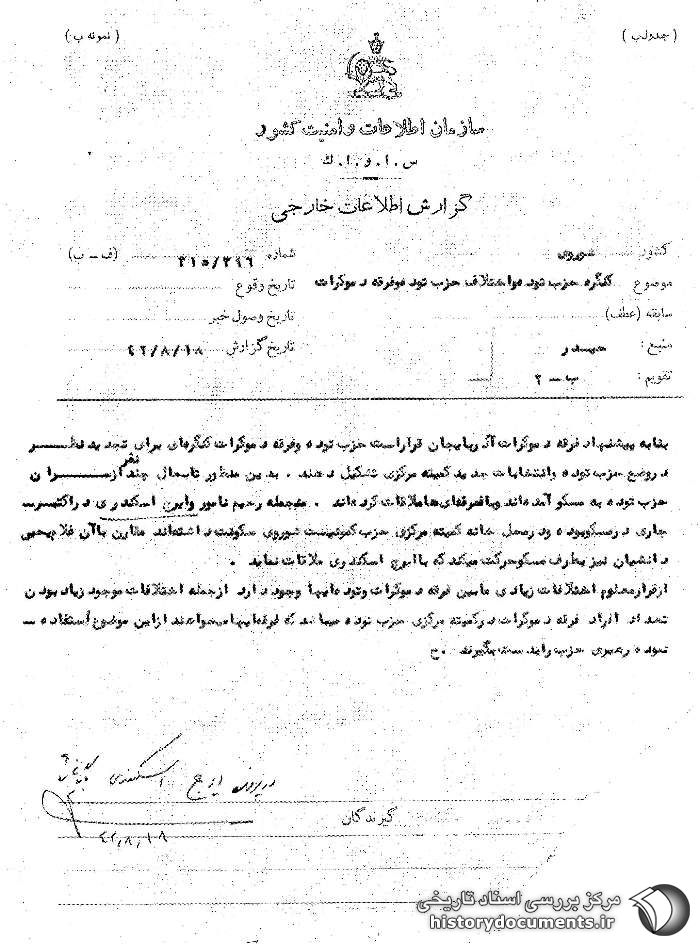 ( جدول ب )
( نمونه ب )
سازمان اطلاعات و امنیت کشور
س . ا . و . ا . ك
گزارش اطلاعات خارجی
کشور شوروی
شماره ۳۱۵/۲۹۶ (ف – ب)
موضوع کنگره حزب توده و اختلاف حزب توده و فرقه دموکرات
تاریخ وقوع
سابقه (عطف)
تاریخ وصول خبر
منبع :
تاریخ گزارش ۴۲/۸/۱۸
تقویم : ب – ۲
بنا به پیشنهاد فرقه دموکرات آذربایجان قراراست حزب توده وفرقه دموکرات کنگره‌ای برای تجدید نظر
نفر
در وضع حزب توده وانتخابات جدید کمیته مرکزی تشکیل دهند . بدین منظور تابحال چند از سران
حزب توده به مسکو آمده‌اند وبافرقه‌ای‌ها ملاقات کرده‌اند . منجمله رحیم نامور وایرج اسکندری در اکتبر
جاری در مسکو بوده ودر محل خانه کمیته مرکزی حزب کمونیست شوروی سکونت داشته‌اند مقارن باآن غلام یحیی
دانشیان نیز بطرف مسکو حرکت میکند که با ایرج اسکندری ملاقات نماید .
ازقرار معلوم اختلافات زیادی مابین فرقه دموکرات وتوده‌ایها وجود دارد ازجمله اختلافات موجود زیاد بودن
تعداد افراد فرقه دموکرات در کمیته مرکزی حزب توده میباشد که فرقه‌ایها میخواهند ازاین موضوع استفاده –
نموده رهبری حزب را بدست بگیرند . ح
در پرونده ایرج اسکندری
گیرندگان
۴۲/۸/۱۸
مرکز بررسی اسناد تاریخی
historydocuments.ir